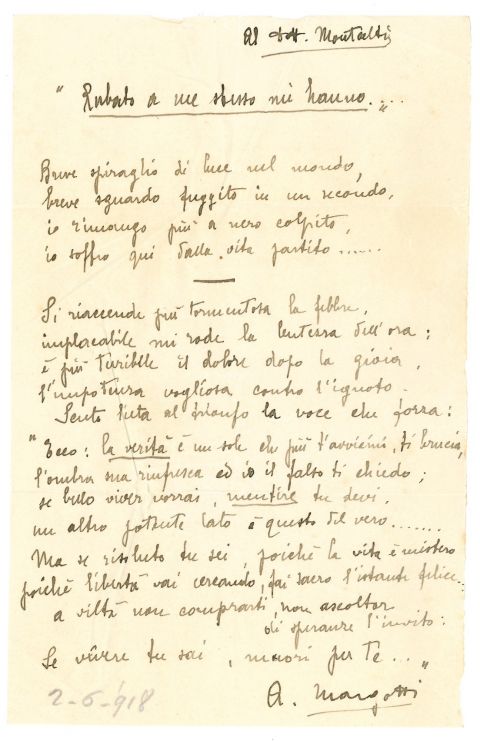 Al Dott. Montalti
" Rubato a me stesso mi hanno..... "
Breve spiraglio di luce nel mondo,
breve sguardo fuggito in un secondo,
io rimango più a nero colpito,
io soffro qui dalla vita partito......
Si riaccende più tormentosa la febbre,
implacabile mi rode la lentezza dell'ora;
è più terribile il dolore dopo la gioia,
l'impotenza vogliosa contro l'ignoto.
Sento lieta al trionfo la voce che forza:
" Ecco: la verità è un sole che più t'avvicini, ti brucia,
l'ombra sua rinfresca ed io il falso ti chiedo;
se bello viver vorrai, mentire tu devi,
un altro potente lato è questo del vero.......
Ma se risoluto tu sei, poichè la vita è mistero
poichè libertà vai cercando, fai sacro l'istante felice..
a viltà non comprarti, non ascoltar
di speranze l'invito:
Se vivere tu sai, muori per te... "
A. Margotti
2-6-918